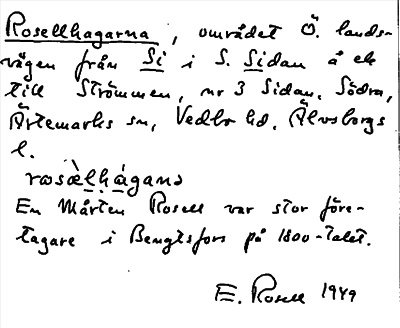 Rosellhagarna, området Ö. lands-
vägen från Si i S. Sidan å ek
till Strömmen, nr 3 Sidan, Södra,
Ärtemarks sn, Vedbo hd, Älvsborgs
l.
rωsὰlhágana
En Mårten Rosell var stor före-
tagare i Bengtsfors på 1800-talet.
E. Rosell 1949